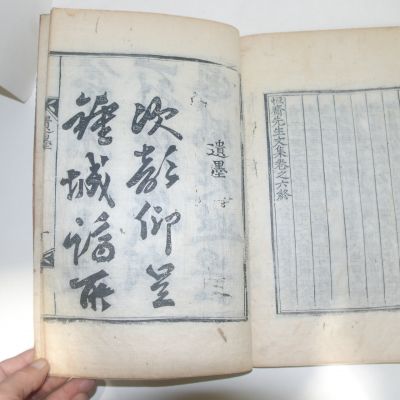 齋先生文集卷之六終
遺墨
次韻仰呈
鍾城謫所
遺墨